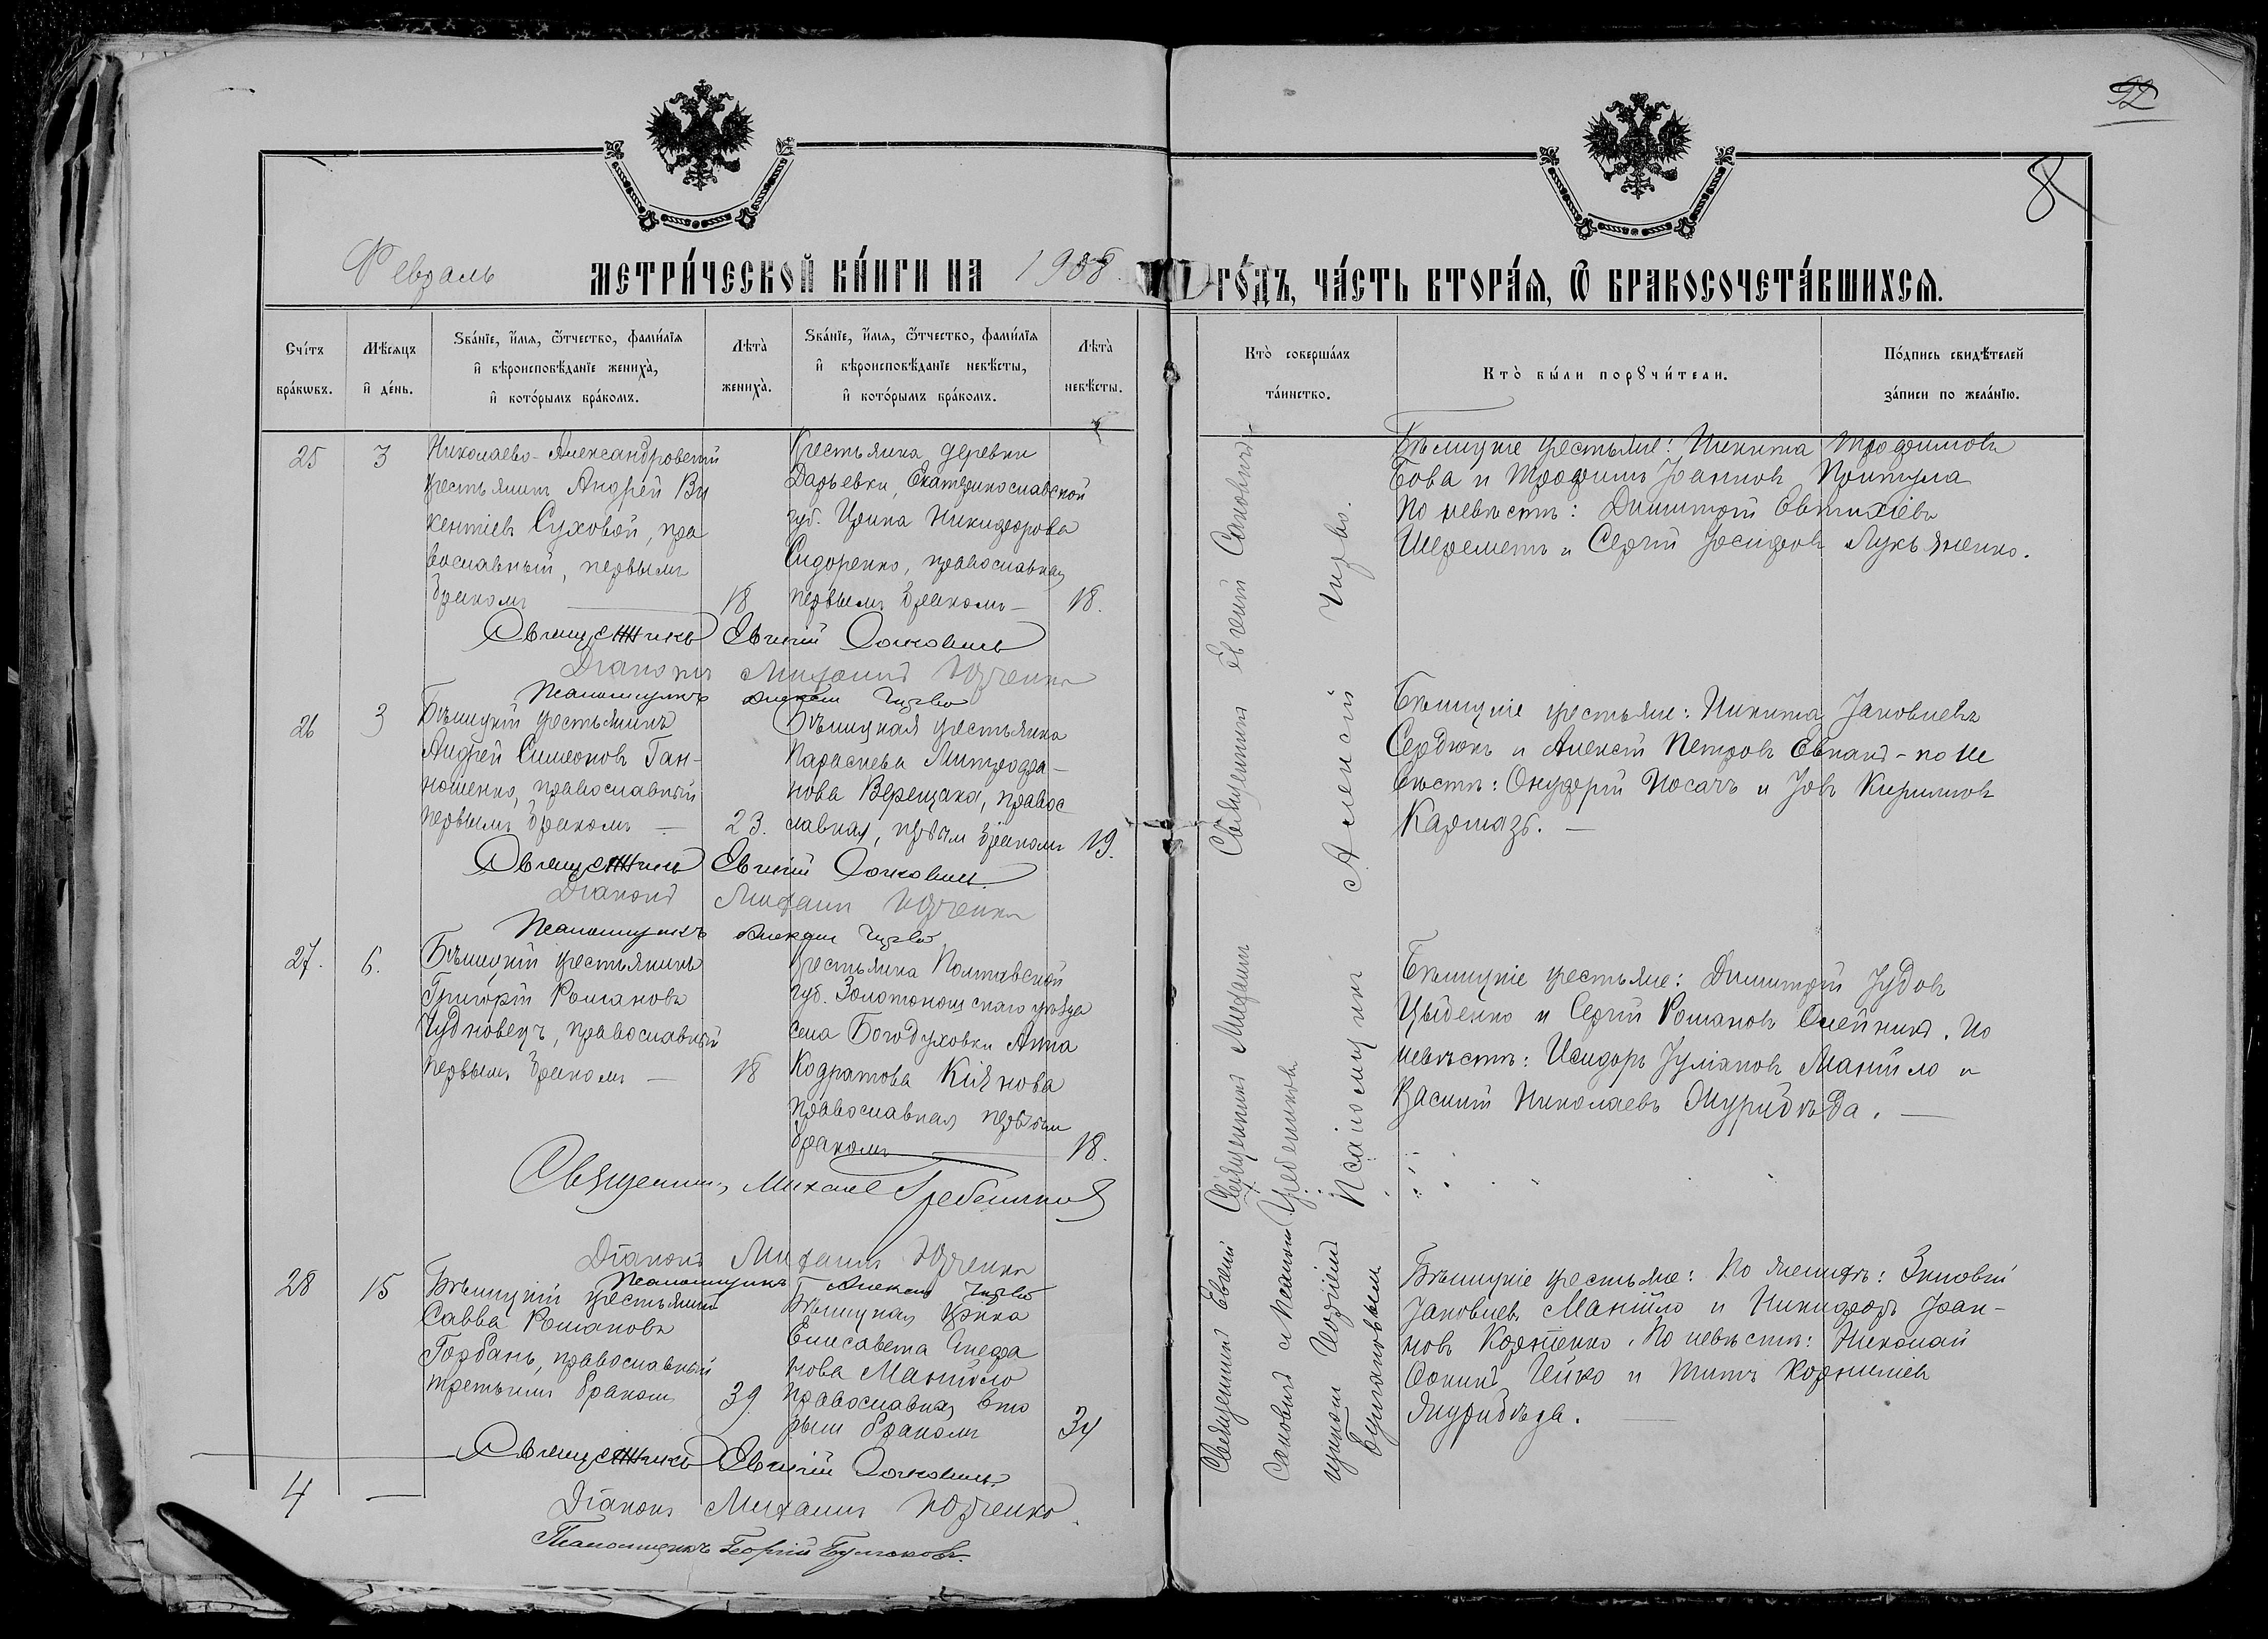 92
8
Февраль
МЕТРИ́ЧЕСКОЙ КНИ́ГИ НА 1908 ГО́ДЪ, ЧА́СТЬ ВТОРА́Я, Ѡ БРАКОСОЧЕТА́ВШИХСЯ.
Сче́тъ бра́кѡвъ.
Мѣ́сяцъ и҆ де́нь.
Зва́нїе, и҆́мя, ѻ҆́тчество, фами́лїя и҆ вѣроисповѣ́данїе жениха̀, и҆ кото́рымъ бра́комъ.
Лѣта̀ жениха̀.
Зва́нїе, и҆́мя, ѻ҆́тчество, фами́лїя и҆ вѣроисповѣ́данїе невѣ́сты, и҆ кото́рымъ бра́комъ.
Лѣта̀ невѣ́сты.
Кто̀ соверша́лъ та́инство.
Кто̀ бы́ли порꙋчи́тели.
По́дпись свидѣ́телей за́писи по жела́нїю.
25
3
Николаево-Александровскій
крестьянинъ Андрей Ви
кентіевъ Суховой, пра
вославный, первымъ
бракомъ
18
Крестьянка деревни
Дарьевки, Екатеринославской
губ. Ирина Никифорова
Сидоренко, православная
первымъ бракомъ —
18.
Бѣлицкіе крестьяне: Никита Трофимовъ
Бова и Трофимъ Іоанновъ Притула
По невѣстѣ: Димитрій Евтихіевъ
Шереметъ и Сергій Іосифовъ Лукьяненко.
Священникъ Евгеній
Діаконъ Михаилъ Юрченко
Псаломщикъ Алексій Чирво
26
3
Бѣлицкій крестьянинъ
Андрей Симеоновъ Ган-
ношенко, православный
первымъ бракомъ —
23.
Бѣлицкая крестьянка
Параскева Митрофа-
нова Верещака, правос
лавная, первым бракомъ
19.
Бѣлицкіе крестьяне: Никита Іаковлевъ
Сердюкъ и Алексій Петровъ - по не
вѣстѣ: Онуфрій Носачъ и Іовъ Кирилловъ
Картазъ. —
Священникъ Евгеній
Діаконъ Михаилъ Юрченко
Псаломщикъ Алексій Чирво
27.
6.
Бѣлицкій крестьянинъ
Григорій Романовъ
Чудновецъ, православный
первымъ бракомъ —
18
крестьянка Полтавской
губ. Золотоношскаго уѣзда
села Богодуховки Анна
Кодратова Кіянова
православная первым
бракомъ
18.
Бѣлицкіе крестьяне: Димитрій Іудовъ
Цыбенко и Сергій Романовъ Олейникъ. По
невѣстѣ: Исидоръ Іуліановъ Манійло и
Василій Николаевъ Журиббѣда. —
Священникъ Михаилъ Гребенниковъ
Діаконъ Михаилъ Юрченко
Псаломщикъ Алексій Чирво
28
15
Бѣлицкій крестьянинъ
Савва Романовъ
Горбань, православный
третьимъ бракомъ
39
Бѣлицкая кр-нка
Елисавета Стефа
нова Манійло
православная вто
рым бракомъ
34
Бѣлицкіе крестьяне: По женихѣ: Зиновій
Іаковлевъ Манійло и Никифоръ Іоан-
новъ Корніенко. По невѣстѣ: Николай
Чейко и Титъ Корниліевъ
Журибѣда. —
Священникъ Евгеній
4 —
Діаконъ Михаилъ Юрченко.
Псаломщикъ Георгій Булгаковъ.
Священникъ Евгеній
Священникъ Михаилъ
Гребенниковъ
Псаломщикъ Алексій Чирво.
Священникъ Евгеній